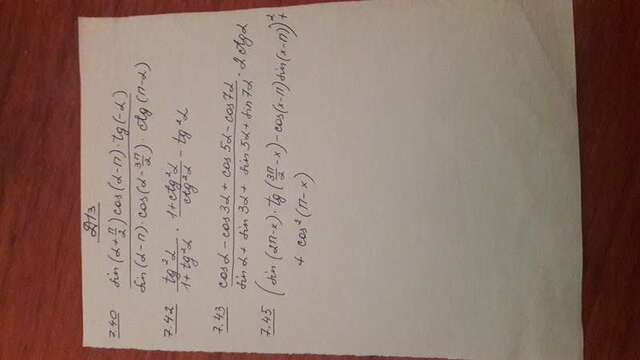 Д/з
7.40 sin(α+π/2)cos(α-π)·tg(-α) / sin(α-π)·cos(α-3π/2)·ctg(π-α)
7.42 tg²α / 1+tg²α · 1+ctg²α / ctg²α - tg²α
7.43 cosα-cos3α+cos5α-cos7α / sinα+sin3α+sin5α+sin7α · 2ctg2
7.45 (sin(2π-x)·tg(3π/2-x)-cos(x-π)sin(x-π))²+
+cos²(π-x)